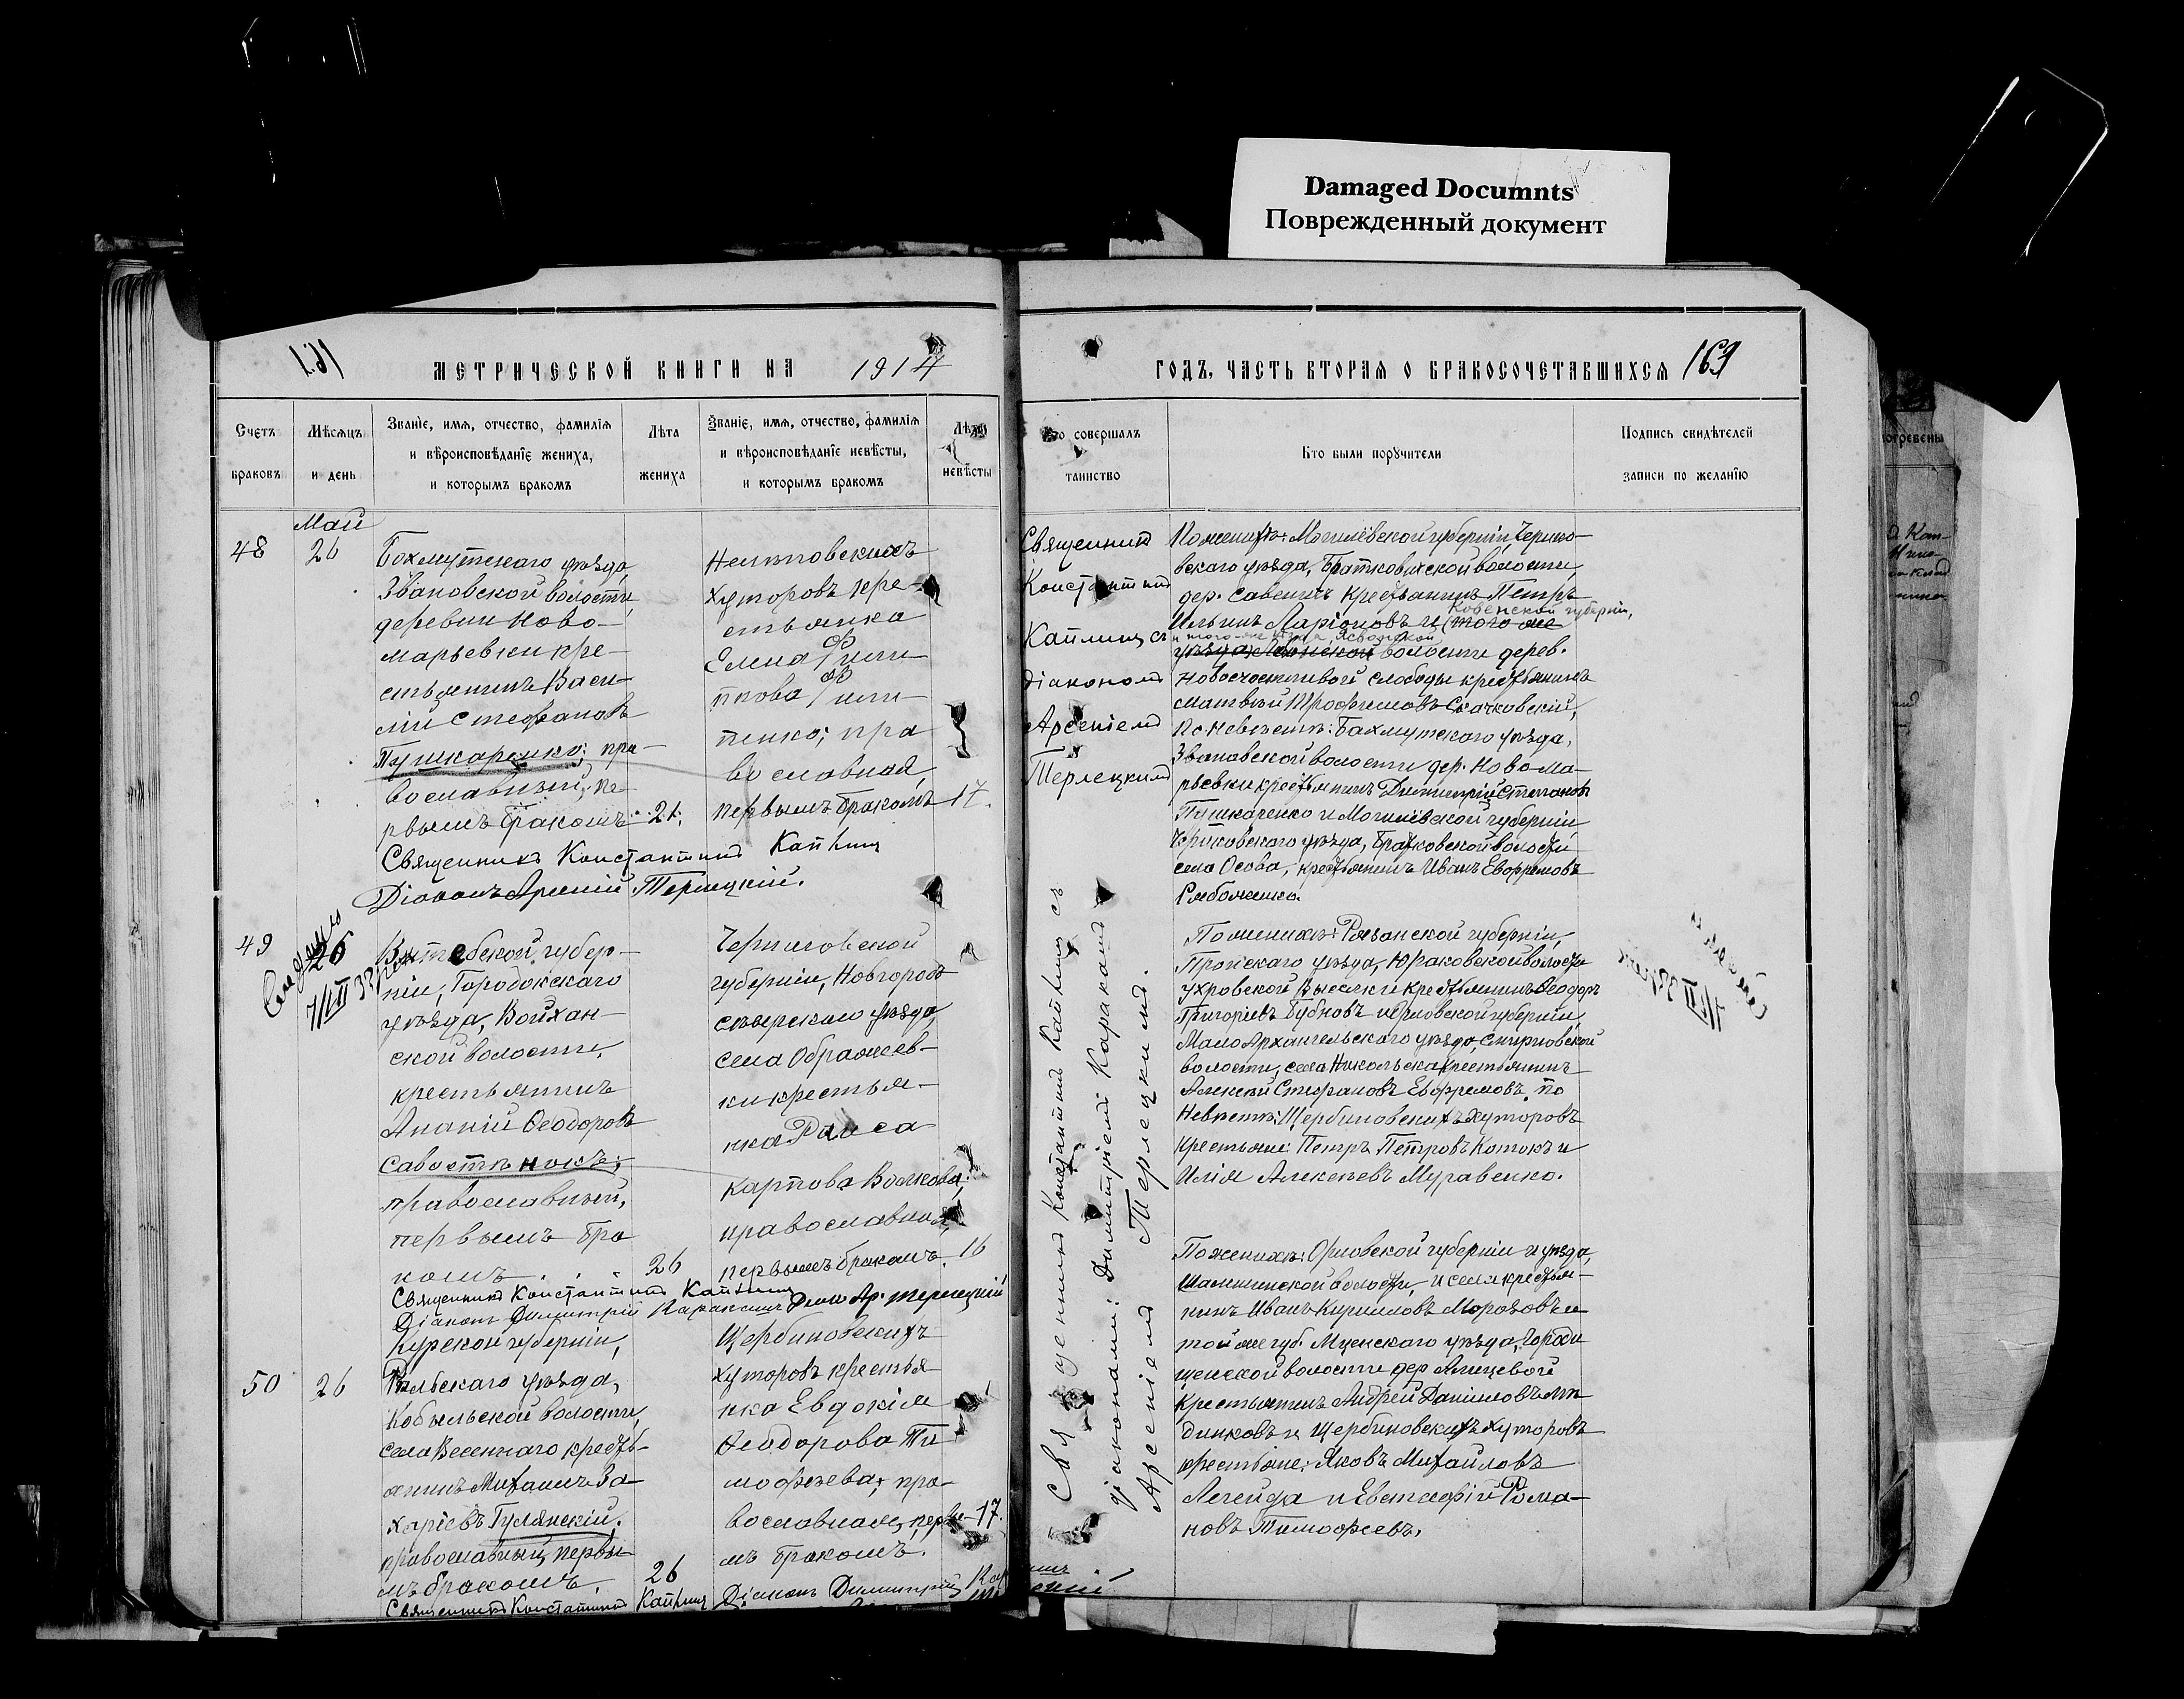 Damaged Documnts
Поврежденный документ
МЕТРИЧЕСКОЙ КНИГИ НА 1914
ГОДЪ, ЧАСТЬ ВТОРАЯ О БРАКОСОЧЕТАВШИХСЯ 169
Счетъ браковъ
Мѣсяцъ и день
Званіе, имя, отчество, фамилія
и вѣроисповѣданіе жениха,
и которымъ бракомъ
Лѣта жениха
Званіе, имя, отчество, фамилія
и вѣроисповѣданіе невѣсты,
и которымъ бракомъ
невѣсты
совершалъ
таинство
Кто были поручители
Подпись свидѣтелей
записи по желанію
48
Май
26
Бахмутскаго уѣзда,
Звановской волости,
деревни Ново-
марьевки кре-
стьянинъ Васи-
лій Стефановъ
Пушкаренко; пра-
вославный, пе-
рвымъ бракомъ
21
Нелѣповскихъ
хуторовъ кре-
стьянка
Елена Фили-
ппова Фили-
пенко; пра
вославная,
первымъ бракомъ
17.
Священникъ Константинъ
Діаконъ Арсеній Терлецкій.
Священникъ
Константинъ
діакономъ
Арсеніемъ
Терлецкимъ
По женихѣ: Могилевской губерніи, Черико-
вскаго уѣзда, Братковичской волости,
дер. крестьянинъ Петръ
Ильинъ Ларіоновъ и того же
Ковенской губерніи,
уѣзда волости дерев.
Новосчастливой слободы крестьянинъ
Матвѣй Трофимовъ Скачковскій,
По невѣстѣ: Бахмутскаго уѣзда,
Звановской волости дер. Ново Ма-
рьевки крестьянинъ Димитрій Степановъ
Пушкаренко и Могилевской губерніи
Чериковскаго уѣзда, волости
села Осова, крестьянинъ Иванъ Евфремовъ
49
26
Витебской губер-
ніи, Городокскаго
уѣзда, Войхан-
ской волости,
крестьянинъ
Ананій Ѳеодоровъ
Савостѣнокъ;
православный,
первымъ бра
комъ
26
Черниговской
губерніи, Новгородъ
сѣверскаго уѣзда,
села Ображеев-
ки крестья-
нка Раиса
Карпова Волкова;
православная,
первымъ бракомъ.
16
Священникъ Константинъ
Діаконъ Димитрій Каракашъ
Священникъ Константинъ съ
діаконами: Димитріемъ Каракашъ
Арсеніемъ Терлецкимъ.
По женихѣ: Рязанской губерніи,
Пронскаго уѣзда, Юраковской волости
Ухровской Выселки крестьянинъ Ѳеодоръ
Григорьевъ Бубновъ и Орловской губерніи,
Мало Архангельскаго уѣзда, Смирновской
волости, села Никольска крестьянинъ
Алексѣй Стефановъ Евфремовъ. По
Невѣстѣ: Щербиновскихъ хуторовъ
Крестьяне: Петръ Петровъ Котокъ и
Илія Алексѣевъ Муравенко.
50
26
Курской губерніи,
Рыльскаго уѣзда,
Кобыльской волости,
села Весенняго кресть-
янинъ Михаилъ За-
харіевъ Гулянскій,
православный, первы-
мъ бракомъ.
26
Щербиновскихъ
хуторовъ крестья-
нка Евдокія
Ѳеодорова Ти
мофѣева; пра-
вославная, первы-
мъ бракомъ.
17.
Священникъ Константинъ
Діаконъ Димитрій
По женихѣ: Орловской губерніи и уѣзда,
волости, и села крестья-
нинъ Иванъ Кирилловъ Морозовъ и
той же губ. Мценскаго уѣзда, Городи
щенской волости дер.
Крестьянинъ Андрей Данииловъ
и Щербиновскихъ хуторовъ
крестьяне: Яковъ Михайловъ
Легейда и Евстафій Рома-
новъ Тимофеевъ.